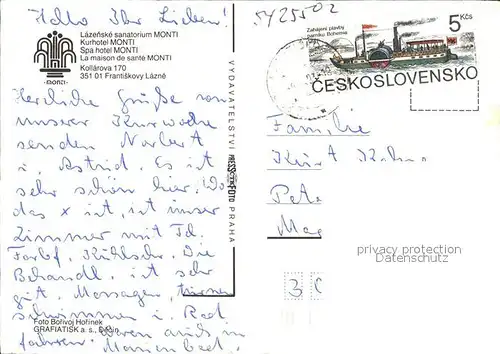 Hallo Ihr Lieben!
5425502
MONTI
Lázeňské sanatorium MONTI
Kurhotel MONTI
Spa hotel MONTI
La maison de santé MONTI
Kollárova 170
351 01 Františkovy Lázně
Herzliche Grüße von
unserer Kurwoche
senden Norbert
u. Astrid. Es ist
sehr schön hier. Wo
das x ist, ist unser
Zimmer mit Tel.
Farbf. Kühlschr. Die
Behandl. ist sehr
gut, Massagen, turnen
schwimmen u. Rad
fahren. Waren auch in
Marienbad.
Foto Bořivoj Hořínek
GRAFIATISK a. s., Děčín
VYDAVATELSTVÍ PRESSFOTO PRAHA
Zahájení plavby
parníku Bohemia
5 Kčs
ČESKOSLOVENSKO
Familie
Kurt
Pete
Mag
privacy protection
DATENSCHUTZ
3